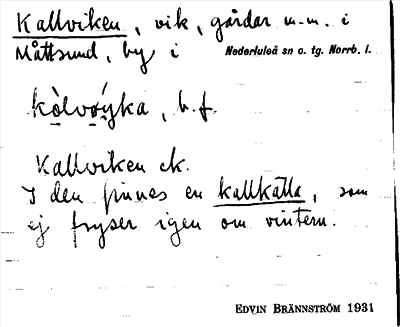 Kallviken, vik, gårdar m.m. i
Måttsund, by i Nederluleå sn o. tg. Norrb. l.
kò̱lvǿ̱yka, b.f.
Kallviken ek.
I den finnes en kallkälla, som
ej fryser igen om vintern.
EDVIN BRÄNNSTRÖM 1931